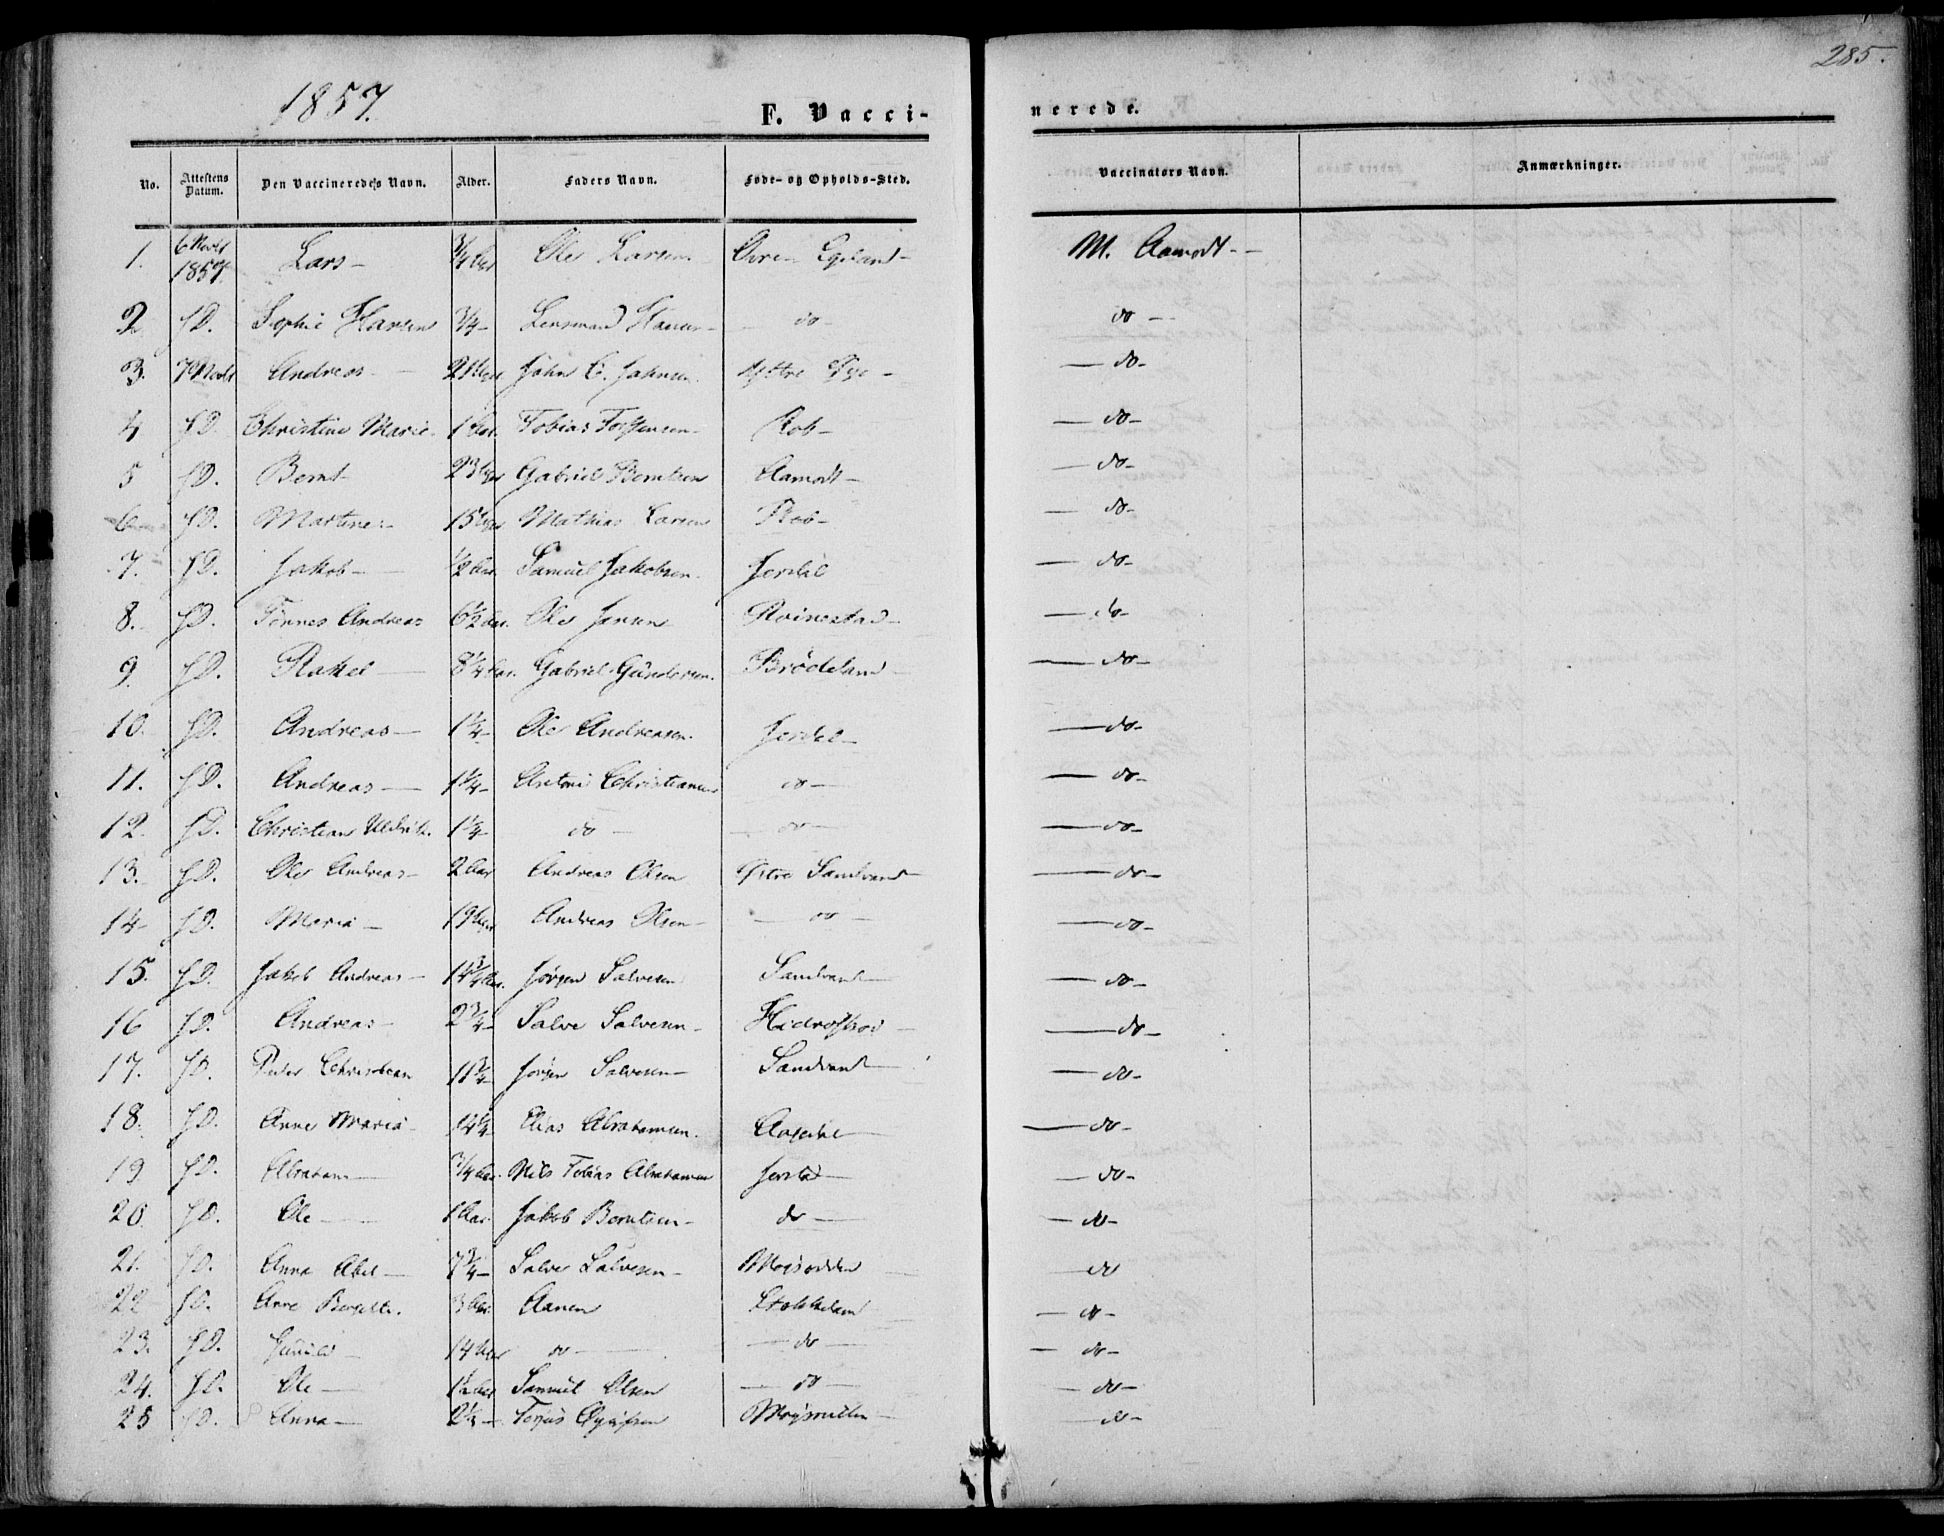 285.
1857.
F. Vacci-
nerede.
No. Attestens Datum. Den Vaccineredes Navn. Alder. Faders Navn. Føde- og Opholds-Sted. Vaccinators Navn. Anmærkninger.
1. 6 Novbr 1857. Lars - 3/4 Aar Ole Larsen Øvre Egeland - M. Aamodt -
2 f D. Sophie Hansen 3/4 - Lensmand Hansen - do - do -
3. 7 Novbr Andreas - 21 John C. Johnsen Ystre - do -
4 f D. Christine Marie. 1 Aar. Tobias - do -
5 f D. Bernt 23 Gabriel Berntsen Aamodt - do -
6 f D. Martine - 15 Mathias Larsen - do -
7. f D. Jakob - 1/2 Aar. Samuel Jakobsen. Jerdal - do -
8. f D. Tønnes Andreas 6 1/2 Aar. Ole Jensen Roinestad - do -
9 f D. Rakel 8 1/4 Aar. Gabriel Gundersen. Brødeland - do -
10. f D. Andreas - 1 1/4 - Ole Andreasen. Jerdal - do -
11. f D. Andreas - 1 1/4 - Antoni Christiansen do - do -
12. f D. Christian 1 1/4 - do - do - do -
13. f D. Ole Andreas - 2 Aar Andreas Olsen Østre Sandvand - do -
14 f D. Maria - 19 Andreas Olsen - do - do -
15. f D. Jakob Andreas - 14 3/4 Aar. Jørgen Salvesen Sandvand - do -
16 f D. Andreas - 2 3/4 - Salve Salvesen - - do -
17. f D. Peder Christian 11 3/4 - Jørgen Salvesen - Sandvand - do -
18. f D. Anne Maria - 14 1/4 Elias Abrahamsen. - do -
19 f D. Abraham - 3/4 Aar. Nils Tobias Abrahamsen - do -
20. f D. Ole - 1 Aar. Jakob Berntsen - do - do -
21. f D. Anna Abel - 7 3/4 - Salve Salvesen - - do
22 f D. Anne 3 Aar. Aanen - do -
23. f D. 14 do - do - do -
24. f D. Ole - Samuel Olsen do - do -
25 f D. Anna - - do -